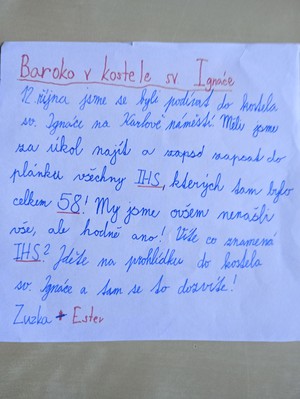 Baroko v kostele sv Ignáce
12. října jsme se byli podívat do kostela
sv. Ignáce na Karlově náměstí. Měli jsme
za úkol najít a zapsd zapsat do
plánku všechny IHS, kterých tam bylo
celkem 58! My jsme ovšem nenašli
vše, ale hodně ano! Víte co znamená
IHS? Jděte na prohlídku do kostela
sv. Ignáce a tam se to dozvíte!
Zuzka + Ester